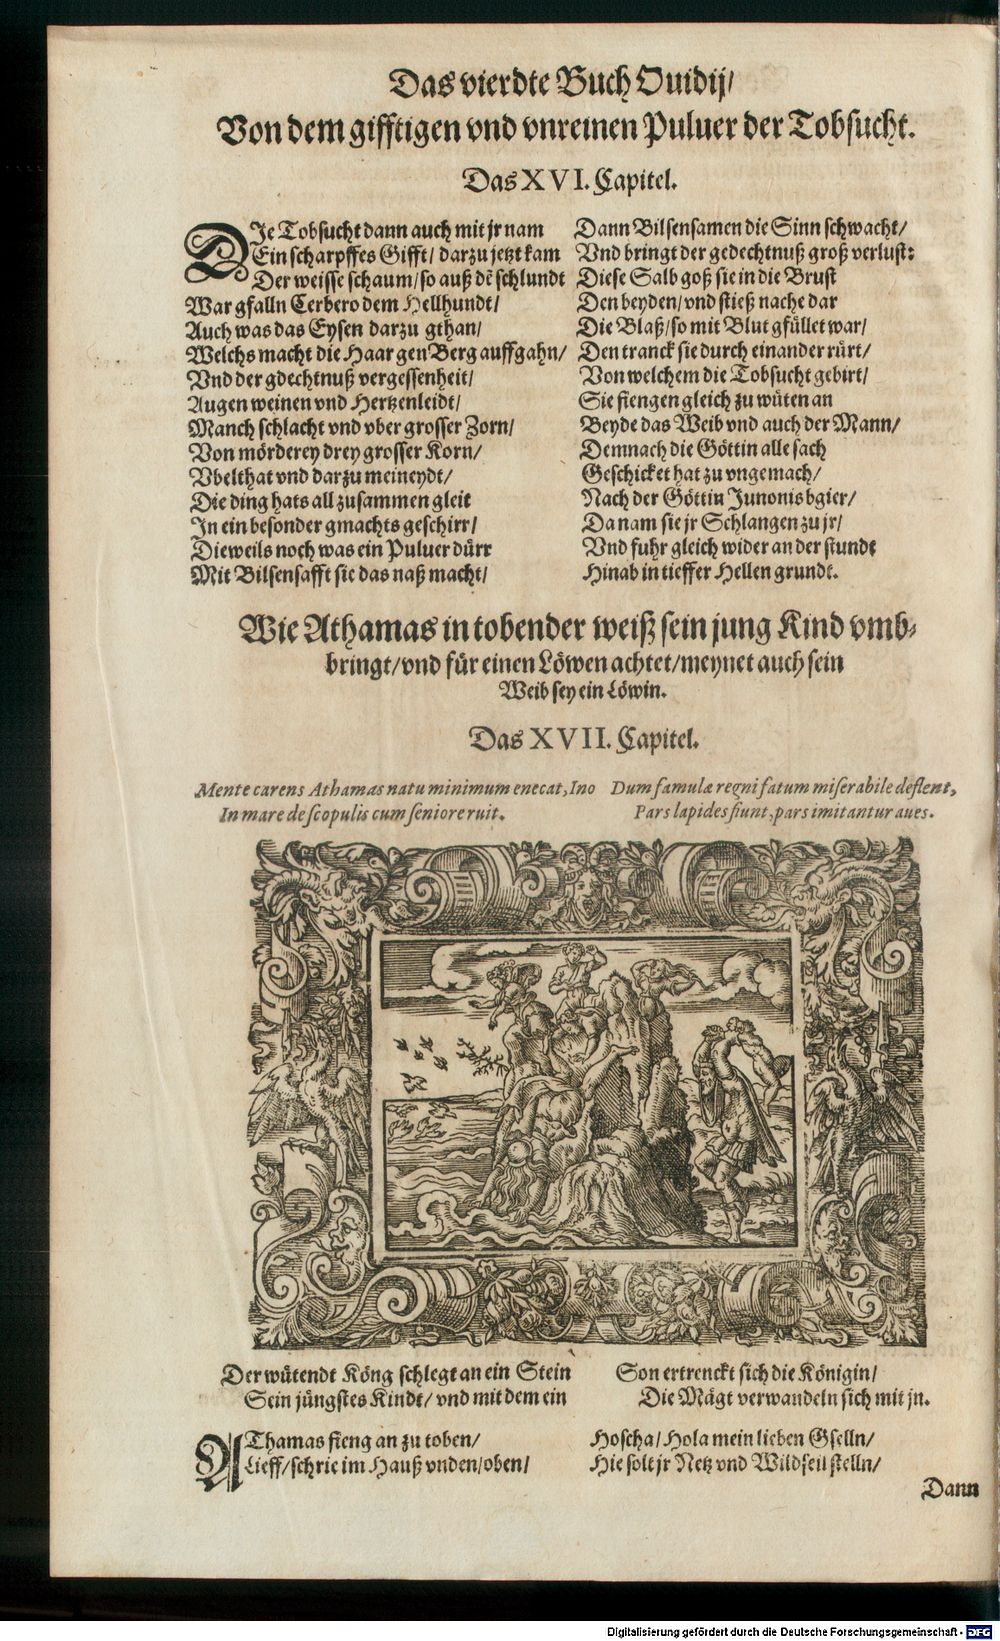 Das vierdte Buch Ouidij/
Von dem gifftigen vnd vnreinen Puluer der Tobsucht.
Das XVI. Capitel.
DIe Tobsucht dann auch mit jr nam
Ein scharpffes Gifft/ darzu jetzt kam
Der weisse schaum/ so auß dẽ schlundt
War gfalln Cerbero dem Hellhundt/
Auch was das Eysen darzu gthan/
Welchs macht die Haar gen Berg auffgahn/
Vnd der gdechtnuß vergessenheit/
Augen weinen vnd Hertzenleidt/
Manch schlacht vnd vber grosser Zorn/
Von mörderey drey grosser Korn/
Vbelthat vnd darzu meineydt/
Die ding hats all zusammen gleit
In ein besonder gmachts geschirr/
Dieweils noch was ein Puluer dürr
Mit Bilsensafft sie das naß macht/
Dann Bilsensamen die Sinn schwacht/
Vnd bringt der gedechtnuß groß verlust:
Diese Salb goß sie in die Brust
Den beyden/ vnd stieß nache dar
Die Blaß/ so mit Blut gfüllet war/
Den tranck sie durch einander rürt/
Von welchem die Tobsucht gebirt/
Sie fiengen gleich zu wüten an
Beyde das Weib vnd auch der Mann/
Demnach die Göttin alle sach
Geschicket hat zu vngemach/
Nach der Göttin Junonis bgier/
Da nam sie jr Schlangen zu jr/
Vnd fuhr gleich wider an der stundt
Hinab in tieffer Hellen grundt.
Wie Athamas in tobender weiß sein jung Kind vmb⸗
bringt/ vnd für einen Löwen achtet/ meynet auch sein
Weib sey ein Löwin.
Das XVII. Capitel.
Mente carens Athamas natu minimum enecat, Ino
In mare de scopulis cum seniore ruit.
Dum famulæ regni fatum miserabile deflent,
Pars lapides fiunt, pars imitantur aues.
Der wütendt Köng schlegt an ein Stein
Sein jüngstes Kindt/ vnd mit dem ein
Son ertrenckt sich die Königin/
Die Mägt verwandeln sich mit jn.
AThamas fieng an zu toben/
Lieff/ schrie im Hauß vnden/ oben/
Hoscha/ Hola mein lieben Gselln/
Hie solt jr Netz vnd Wildseil stelln/
Dann
Digitalisierung gefördert durch die Deutsche Forschungsgemeinschaft - DFG